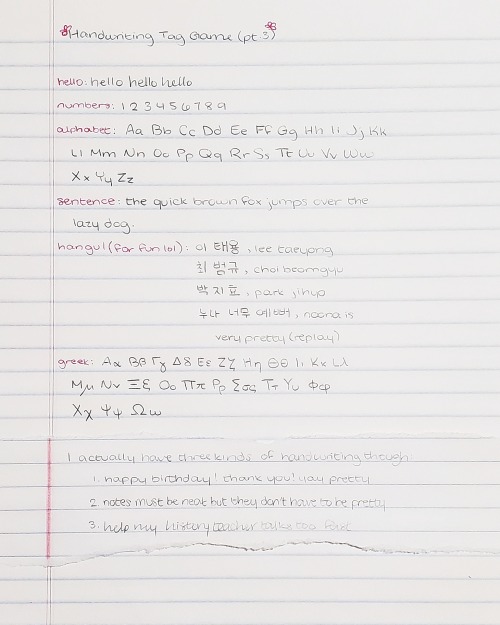 Handwriting Tag Game (pt.3)
hello: hello hello hello
numbers: 1 2 3 4 5 6 7 8 9
alphabet: Aa Bb Cc Dd Ee Ff Gg Hh Ii Jj Kk
Ll Mm Nn Oo Pp Qq Rr Ss Tt Uu Vv Ww
Xx Yy Zz
sentence: the quick brown fox jumps over the
lazy dog.
hangul (for fun lol): 이 태용, lee taeyong
최 범규, choi beomgyu
박 지효, park jihyo
누나 너무 예뻐, noona is
very pretty (replay)
greek: Αα Ββ Γγ Δδ Εε Ζζ Ηη Θθ Ιι Κκ Λλ
Μμ Νν Ξξ Οο Ππ Ρρ Σσς Ττ Υυ Φφ
Χχ Ψψ Ωω
I actually have three kinds of handwriting though:
1. happy birthday! thank you! yay pretty
2. notes must be neat but they don't have to be pretty
3. help my history teacher talks too fast